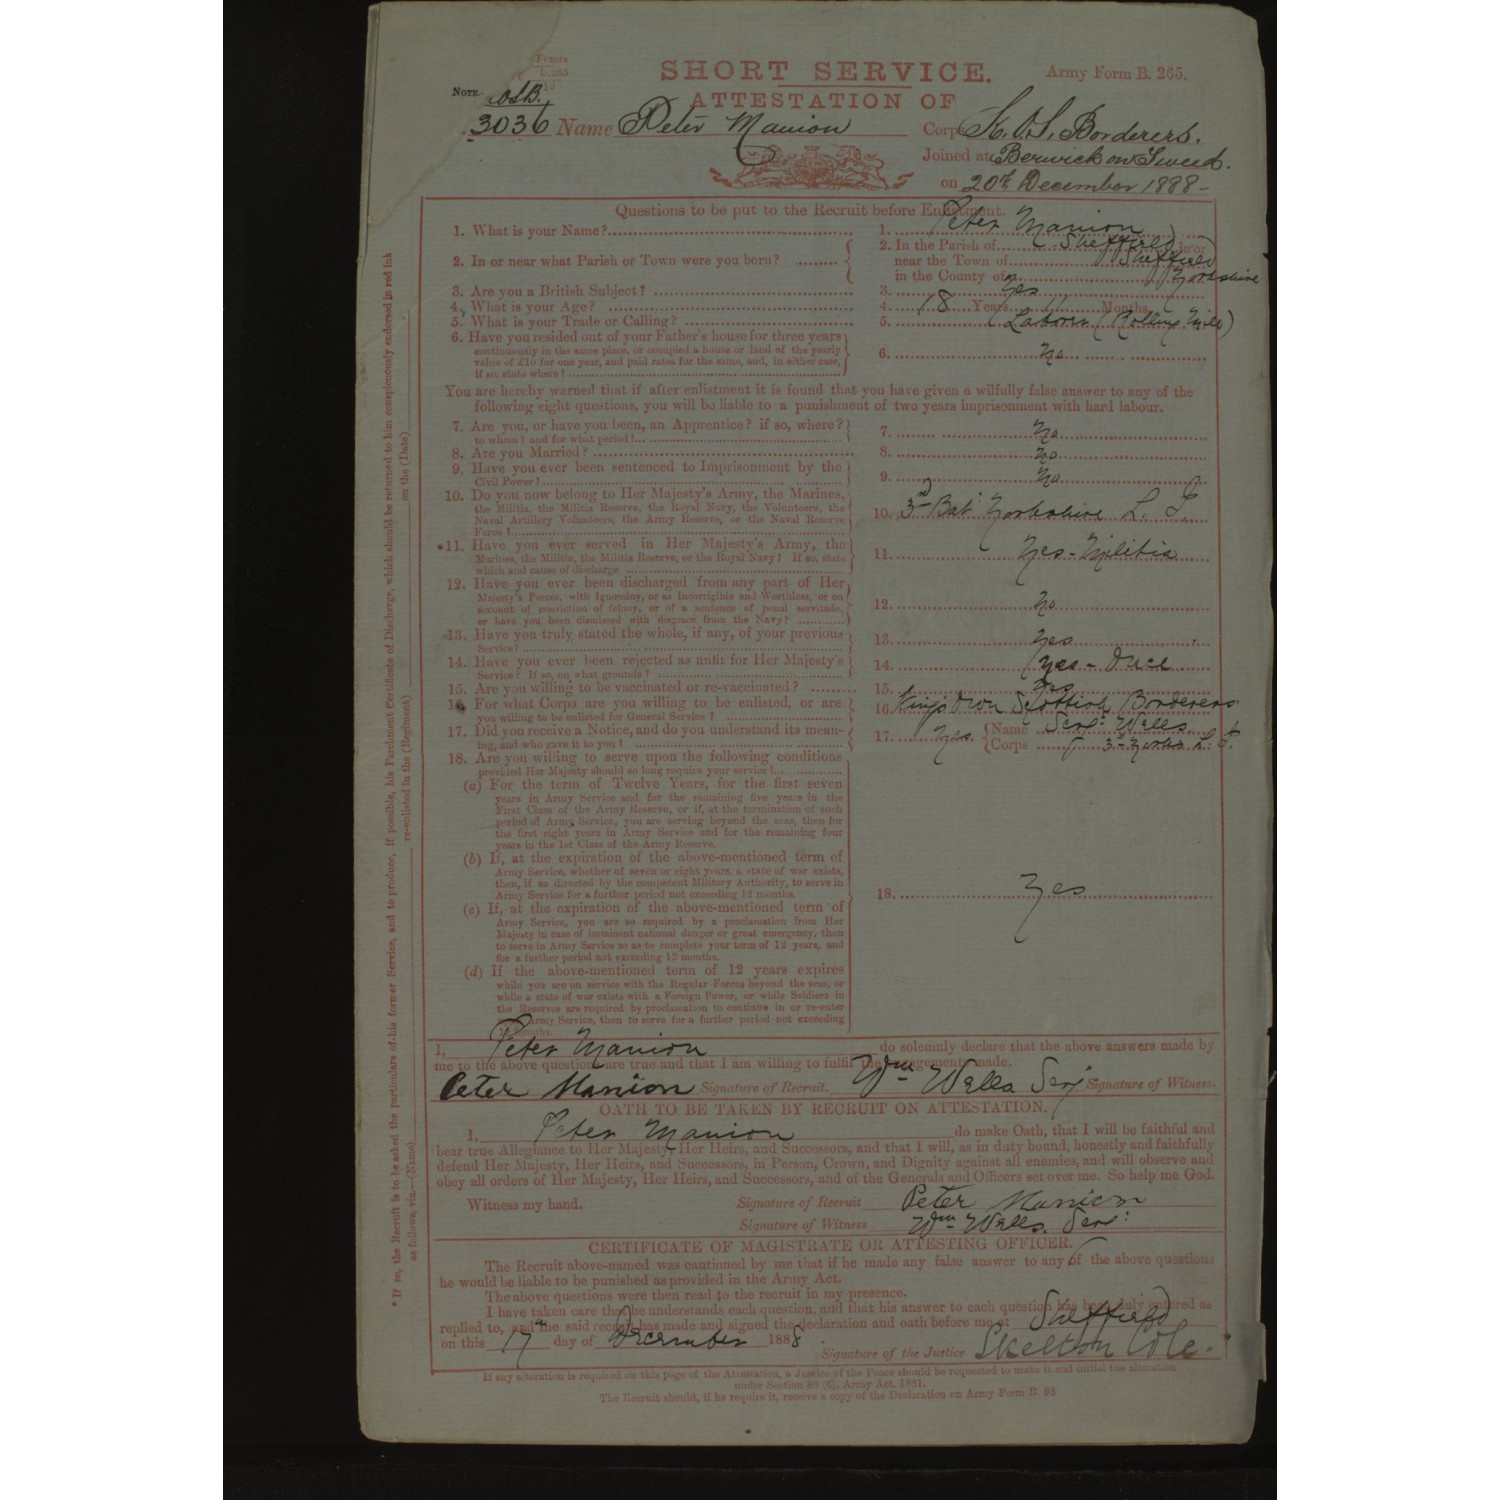 Forms
B.265
SHORT SERVICE.
Army Form B. 265.
NOTE.
ATTESTATION OF
3036 Name Peter Manion Corps K.O.S. Borderers.
Joined at Berwick on Tweed.
on 20th December 1888-
Questions to be put to the Recruit before Enlistment.
1. What is your Name? 1. Peter Manion
2. In or near what Parish or Town were you born? 2. In the Parish of Sheffield in or
near the Town of Sheffield
in the County of Yorkshire
3. Are you a British Subject? 3. Yes
4. What is your Age? 4. 18 Years 11 Months
5. What is your Trade or Calling? 5. Laborer (Rolling Mill)
6. Have you resided out of your Father's house for three years
continuously in the same place, or occupied a house or land of the yearly
value of £10 for one year, and paid rates for the same, and, in either case,
If so, state where? 6. No
You are hereby warned that if after enlistment it is found that you have given a wilfully false answer to any of the
following eight questions, you will be liable to a punishment of two years imprisonment with hard labour.
7. Are you, or have you been, an Apprentice? if so, where?
to whom? and for what period? 7. No
8. Are you Married? 8. No
9. Have you ever been sentenced to Imprisonment by the
Civil Power? 9. No
10. Do you now belong to Her Majesty's Army, the Marines,
the Militia, the Militia Reserve, the Royal Navy, the Volunteers, the
Naval Artillery Volunteers, the Army Reserve, or the Naval Reserve
Force? 10. 3rd Bat Yorkshire L. I.
*11. Have you ever served in Her Majesty's Army, the
Marines, the Militia, the Militia Reserve, or the Royal Navy? If so, state
which and cause of discharge 11. Yes - Militia
12. Have you ever been discharged from any part of Her
Majesty's Forces, with Ignominy, or as Incorrigible and Worthless, or on
account of conviction of felony, or of a sentence of penal servitude,
or have you been dismissed with disgrace from the Navy? 12. No
13. Have you truly stated the whole, if any, of your previous
Service? 13. Yes
14. Have you ever been rejected as unfit for Her Majesty's
Service? If so, on what grounds? 14. Yes -
15. Are you willing to be vaccinated or re-vaccinated? 15. Yes
16. For what Corps are you willing to be enlisted, or are
you willing to be enlisted for General Service? 16. Kings Own Scottish Borderers
17. Did you receive a Notice, and do you understand its mean-
ing, and who gave it to you? 17. Yes {Name Sergt Wells
Corps 3rd Yorks L. I.
18. Are you willing to serve upon the following conditions
provided Her Majesty should so long require your service?
(a) For the term of Twelve Years, for the first seven
years in Army Service and for the remaining five years in the
First Class of the Army Reserve, or if, at the termination of such
period of Army Service, you are serving beyond the seas, then for
the first eight years in Army Service and for the remaining four
years in the 1st Class of the Army Reserve.
(b) If, at the expiration of the above-mentioned term of
Army Service, whether of seven or eight years, a state of war exists,
then, if so directed by the competent Military Authority, to serve in
Army Service for a further period not exceeding 12 months.
18. Yes
(c) If, at the expiration of the above-mentioned term of
Army Service, you are so required by a proclamation from Her
Majesty in case of imminent national danger or great emergency, then
to serve in Army Service so as to complete your term of 12 years, and
for a further period not exceeding 12 months.
(d) If the above-mentioned term of 12 years expires
while you are on service with the Regular Forces beyond the seas, or
while a state of war exists with a Foreign Power, or while Soldiers in
the Reserves are required by proclamation to continue in or re-enter
Army Service, then to serve for a further period not exceeding
months.
I, Peter Manion do solemnly declare that the above answers made by
me to the above questions are true and that I am willing to fulfil the engagements made.
Peter Manion Signature of Recruit. Wm Wells Serj Signature of Witness.
OATH TO BE TAKEN BY RECRUIT ON ATTESTATION.
I, Peter Manion do make Oath, that I will be faithful and
bear true Allegiance to Her Majesty, Her Heirs, and Successors, and that I will, as in duty bound, honestly and faithfully
defend Her Majesty, Her Heirs, and Successors, in Person, Crown, and Dignity against all enemies, and will observe and
obey all orders of Her Majesty, Her Heirs, and Successors, and of the Generals and Officers set over me. So help me God.
Witness my hand. Signature of Recruit Peter Manion
Signature of Witness Wm Wells. Serj:
CERTIFICATE OF MAGISTRATE OR ATTESTING OFFICER.
The Recruit above-named was cautioned by me that if he made any false answer to any of the above questions
he would be liable to be punished as provided in the Army Act.
The above questions were then read to the recruit in my presence.
I have taken care that he understands each question, and that his answer to each question has been duly entered as
replied to, and the said recruit has made and signed the declaration and oath before me at Sheffield
on this 17th day of December 1888.
Signature of the Justice Skelton Cole.
If any alteration is required on this page of the Attestation, a Justice of the Peace should be requested to make it and initial the alteration
under Section 80 (6), Army Act, 1881.
The Recruit should, if he require it, receive a copy of the Declaration on Army Form B. 93
* If so, the Recruit is to be asked the particulars of his former Service, and to produce, if possible, his Parchment Certificate of Discharge, which should be returned to him conspicuously endorsed in red ink
as follows, viz.—(Name) re-enlisted in the (Regiment) on the (Date)